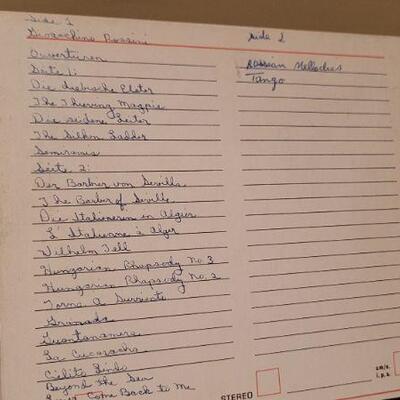 Side 1
Gioachino Rossini
Ouvertüren
Seite 1:
Die diebische Elster
The Thieving Magpie
Die seidene Leiter
The Silken Ladder
Semiramis
Seite 2:
Der Barbier von Sevilla
The Barber of Seville
Die Italienerin in Algier
L' Italienne à Alger
Wilhelm Tell
Hungarian Rhapsody No. 3
Hungarian Rhapsody No. 2
Torna A Surriento
Granada
Guantanamera
La Cucaracha
Cielito Lindo
Beyond the Sea
Come Back to Me
Side 2
Russian Mellodies
Tango
STEREO
cm/s.
i.p.s.